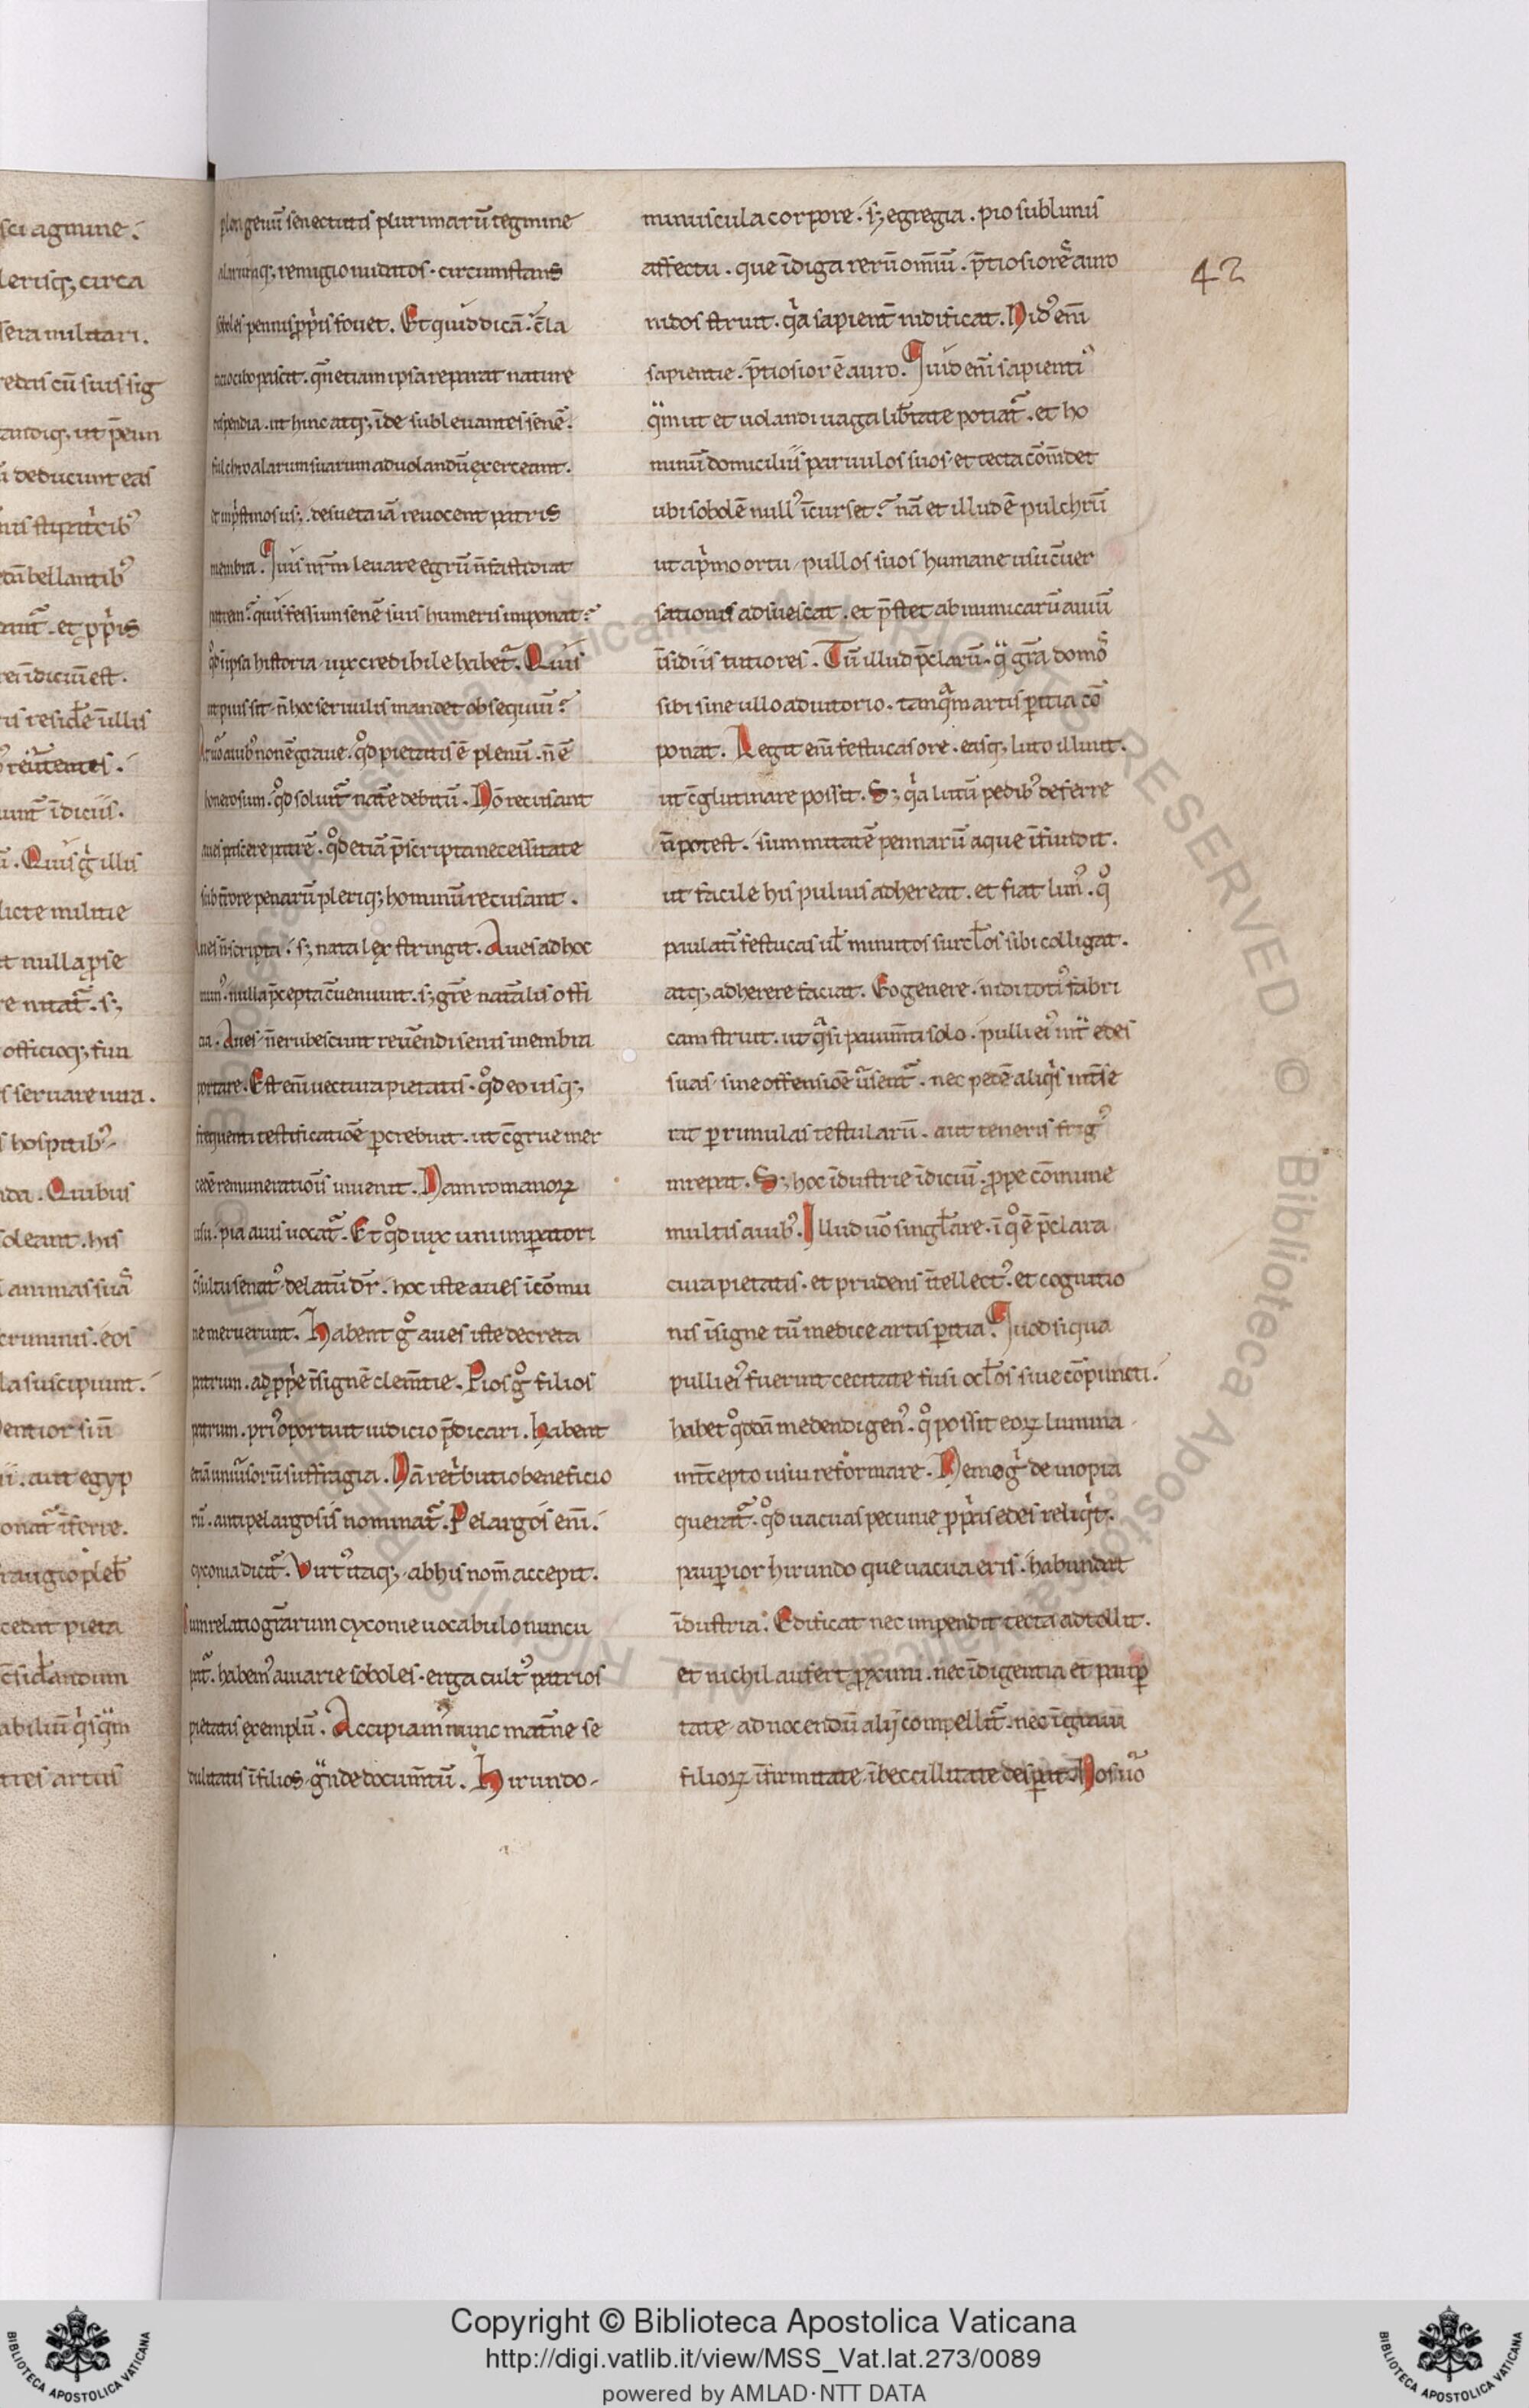 sci agmine.
lerisq; circa
sera militari.
redas cū suis sig
andiq; ut p̄eun
deducunt eas
nis stipatͥcibꝰ
etū bellantibꝰ
et ꝓpͥis
rei īdiciū est.
ris residē ullis
reūtentes.
īdiciis.
Quis gͥ illis
licte militie
nulla ꝓse
re nitat᷑. s;
officioq; fun
s seruare uira.
s hospitibꝰ
nda. Quibus
soleant. his
animas suā
criminis. eos
la suscipiunt.
entior siū
aut egyp
onat᷑ īferre.
cedat pieta
c̄siderandum
abiliū qͥsqͣm
artus
plongeuū senectutis plurimarū tegmine
alarumq; remigio nudatos. circumstans
soboles pennis ꝓpͥis fouet. Et quid dicā. c̄la
ticio cibo pascit. qn̄ etiam ipsa reparat nature
dispendia. ut hinc atq; īde subleuantes senē.
fulchro alarum suarum ad uolandū exerceant.
et in pͥstinos us; desueta iā reuocent patris
membra. Quis nr̄m leuare egrū n̄ fastidiat
patrem? quis fessum senē suis humeris imponat?
qͦd in ipsa historia uix credibile habet᷑. Quis
ut pius sit. n̄ hoc seruulis mandet obsequiū?
At uͦ auibꝰ non ē graue. qͦd pietatis ē plenū. n̄ ē
honerosum. qͦd soluit᷑ nat̄e debitū. Nō recusant
aues pascere patrē. qͦd etiā p̄scripta necessitate
sub t̄rore penarū pleriq; hominū recusant.
Aues n̄ scripta. s; nata lex stringit. Aues ad hoc
munꝰ. nulla p̄cepta c̄ueniunt. s; gr̄e nat̄alis offi
cia. Aues n̄ erubescunt reūendi senis membra
portare. Est eni uectura pietatis. qͦd eo usq;
frequenti testificatiōe ꝑcrebuit. ut c̄grue mer
cedē remuneratiōis inuenit. Nam romanoꝝ
usu. pia auis uocat᷑. Et qͦd uix uni imꝑatori
c̄sultu senatꝰ delatū dr̄. hoc iste aues i cōmu
ne meruerunt. Habent gͦ aues iste decreta
patrum. ad ꝓpͥe īsignē clem̄tie. Pios gͦ filios
patrum. priꝰ oportuit iudicio p̄dicari. Habent
etiā uniūsorū suffragia. Nā retͥbutio beneficio
rū. antipelargosis nominat᷑. Pelargos eni.
cyconia dicit᷑. Virtꝰ itaq; ab his nom̄ accepit.
cum relatio gr̄arum cyconie uocabulo nuncu
pat᷑. habemꝰ auiarie soboles. erga cultꝰ patrios
pietatis exemplū. Accipiamꝰ nunc mat̄ne se
dulitatis ī filios gͣnde docum̄tū. Hirundo-
minuscula corpore. s; egregia. pio sublimis
affectu. que īdiga rerū omniū. p̄tiosiorē auro
nidos struit. qͥa sapient̄ nidificat. Nidꝰ eni
sapientie. p̄tiosior ē auro. Quid eni sapientiꝰ
qͣm ut et uolandi uaga lib̄tate potiat᷑. et ho
minū domiciliis paruulos suos et tecta cōm̄det
ubi sobolē nullꝰ īcurset? nā et illud ē pulchrū
ut a pͥmo ortu pullos suos humane usu c̄uer
sationis adsuescat. et p̄stet ab inimicarū auiū
īsidiis tutiores. Tū illud p̄clarū. qͣ gr̄a domos
sibi sine ullo adiutorio. tanqͣm artis ꝑitia cō
ponat. Legit eni festucas ore. easq; luto illinit.
ut c̄glutinare possit. S; qͥa lutū pedibꝰ deferre
n̄ potest. summitatē pennarū aque īfundit.
ut facile his puluis adhereat. et fiat limꝰ. qͦ
paulatī festucas ul̄ minutos surcl̄os sibi colligat.
atq; adherere faciat. Eo genere. nidi totiꝰ fabri
cam struit. ut qͣsi pauim̄ti solo. pulli eiꝰ int̄ edes
suas. sine offensiōe ūsent᷑. nec pedē aliqͥs int̄se
rat ꝑ rimulas testularū. aut teneris frigꝰ
inrepat. S; hoc īdustrie īdiciū. ꝓpe cōmune
multis auibꝰ. Illud uͦ singl̄are. ī qͦ ē p̄clara
cura pietatis. et prudens ītellectꝰ. et cognitio
nis īsigne tū medice artis ꝑitia. Quod si qua
pulli eiꝰ fuerint cecitate fusi ocl̄os siue cōpuncti.
habet qͦdda medendi genꝰ. qͦ possit eoꝝ lumina
int̄cepto usui reformare. Nemo gͥ de inopia
querat᷑. qͦd uacuas pecunie ꝓpͥas edes reliqͥt.
pauꝑior hirundo que uacua eris. habundat
īdustria. Edificat nec impendit tecta adtollit.
et nichil aufert ꝓximi. nec īdigentia et pauꝑ
tate ad nocendū alij compellit᷑. nec ī graui
filioꝝ īfirmitate. ībeccillitate desꝑat. Nos uͦ
42
Copyright © Biblioteca Apostolica Vaticana
http://digi.vatlib.it/view/MSS_Vat.lat.273/0089
powered by AMLAD·NTT DATA